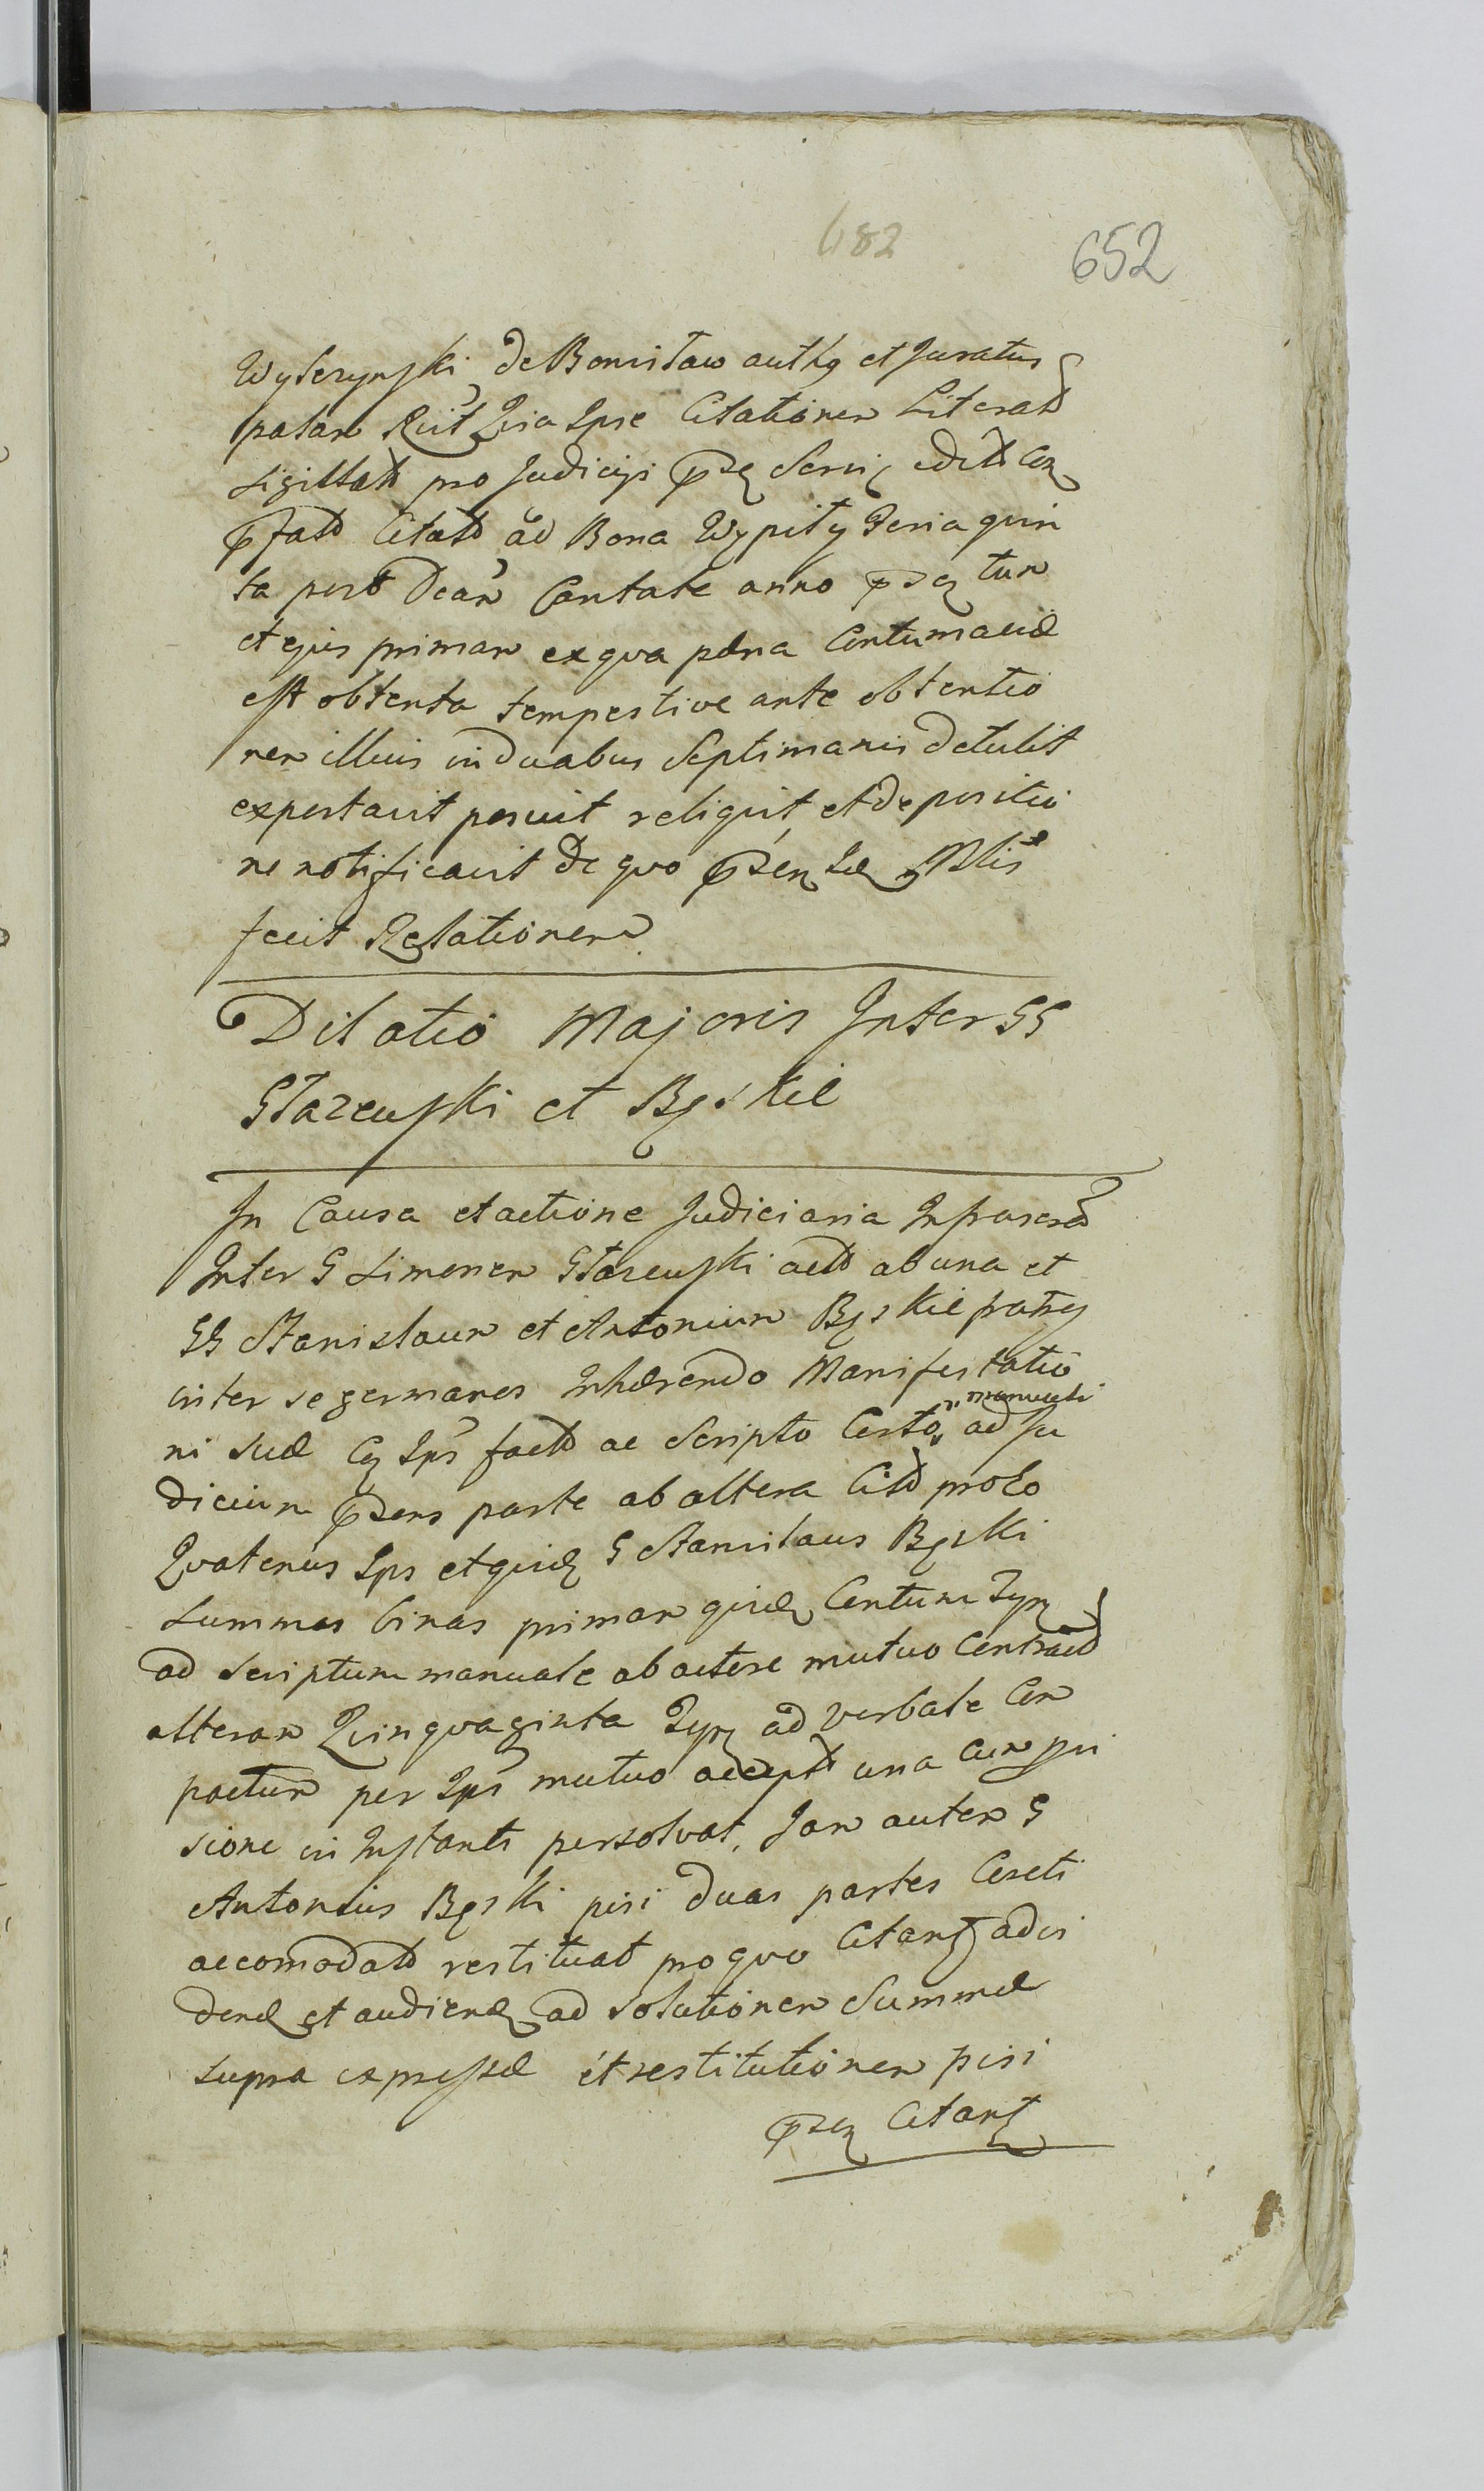 682
652
Wyserzynski de Bonislaw authq et Juratus
palam Recit Quia Ipse Citationem Literat
sigillat pro Judicijs pse Servi edit Con
pfat Citat ad Bona Wypity Feria quin
ta post Dcam Cantate anno psen tum
et ejus primam ex qva pdna Contumaciæ
est obtenta tempestive ante obtentio
nem illius in duabus Septimanis detulit
exportavit posuit reliquit, et depositio
ne notificavit de quo psen
fecit Relationem
Dilatio Majoris Inter GG
Starzewski et Bgskie
In Causa et actione Judiciaria Infrascr
Inter G Simonem Starzewski act ab una et
GG Stanislaum et Antonium Bgskie fratres
inter se germanos Inhærendo Manifestatio
ni suæ Con Ips fact ac Scripto Certo manuali ad Ju
dicium psens parte ab altera Cit proto
Qvatenus Ips et quid G Stanislaus Bgski
Summas binas primam quid Centum Tyn
ad Scriptum manuale ab actore mutuo Contract
alteram Quinqvaginta Tyn ad verbale Com
pactum per Ips mutuo accept una cum pri
sione in Instanti persolvat, Jam autem G
Antonius Bgski pisi duas partes Coreti
accomodat restituat pro qvo Citant ad vi
dend et audiend ad Solutionem Summæ
supra expressæ et restitutionem pisi
psen Citant